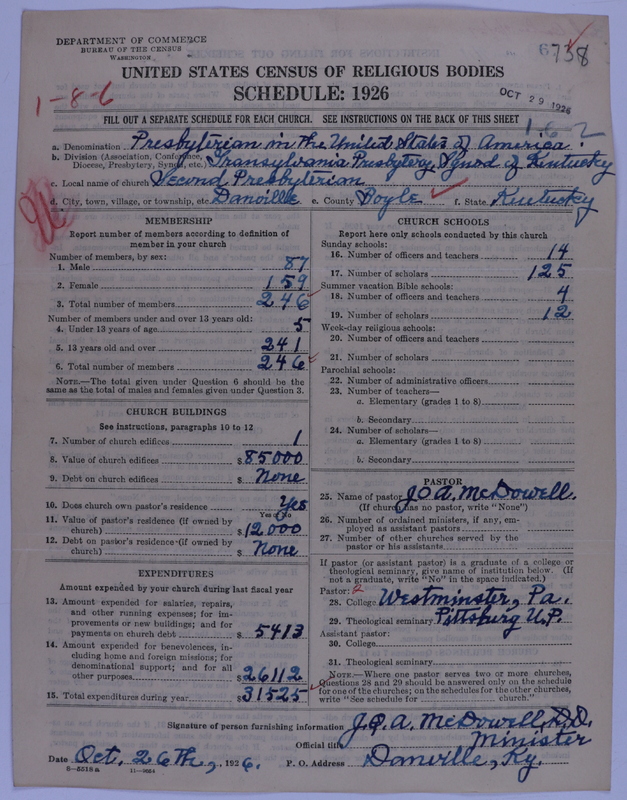 DEPARTMENT OF COMMERCE
BUREAU OF THE CENSUS
WASHINGTON
738
UNITED STATES CENSUS OF RELIGIOUS BODIES
SCHEDULE: 1926
OCT 29 1926
1-8-6
FILL OUT A SEPARATE SCHEDULE FOR EACH CHURCH. SEE INSTRUCTIONS ON THE BACK OF THIS SHEET
162
a. Denomination Presbyterian in the United States of America.
b. Division (Association, Conference, Diocese, Presbytery, Synod, etc.) Transylvania Presbytery, Synod of Kentucky
c. Local name of church Second Presbyterian
d. City, town, village, or township, etc. Danville e. County Boyle f. State Kentucky
MEMBERSHIP
Report number of members according to definition of
member in your church
Number of members, by sex:
1. Male 87
2. Female 159
3. Total number of members 246
Number of members under and over 13 years old:
4. Under 13 years of age 5
5. 13 years old and over 241
6. Total number of members 246
NOTE.—The total given under Question 6 should be the
same as the total of males and females given under Question 3.
CHURCH BUILDINGS
See instructions, paragraphs 10 to 12
7. Number of church edifices 1
8. Value of church edifices $85000
9. Debt on church edifices $None
10. Does church own pastor's residence Yes
Yes or No
11. Value of pastor's residence (if owned by
church) $12000
12. Debt on pastor's residence (if owned by
church) $None
EXPENDITURES
Amount expended by your church during last fiscal year
13. Amount expended for salaries, repairs,
and other running expenses; for im-
provements or new buildings; and for
payments on church debt $5413
14. Amount expended for benevolences, in-
cluding home and foreign missions; for
denominational support; and for all
other purposes $26112
15. Total expenditures during year $31525
CHURCH SCHOOLS
Report here only schools conducted by this church
Sunday schools:
16. Number of officers and teachers 14
17. Number of scholars 125
Summer vacation Bible schools:
18. Number of officers and teachers 4
19. Number of scholars 12
Week-day religious schools:
20. Number of officers and teachers
21. Number of scholars
Parochial schools:
22. Number of administrative officers
23. Number of teachers—
a. Elementary (grades 1 to 8)
b. Secondary
24. Number of scholars—
a. Elementary (grades 1 to 8)
b. Secondary
PASTOR
25. Name of pastor J.Q.A. McDowell.
(If church has no pastor, write "None")
26. Number of ordained ministers, if any, em-
ployed as assistant pastors
27. Number of other churches served by the
pastor or his assistants
If pastor (or assistant pastor) is a graduate of a college or
theological seminary, give name of institution below. (If
not a graduate, write "No" in the space indicated.)
Pastor:
28. College Westminster, Pa.
29. Theological seminary Pittsburg U.P.
Assistant pastor:
30. College
31. Theological seminary
NOTE.—Where one pastor serves two or more churches,
Questions 28 and 29 should be answered only on the schedule
for one of the churches; on the schedules for the other churches,
write "See schedule for church."
Signature of person furnishing information J.Q.A. McDowell, D.D.
Official title Minister
Date Oct. 26th, 1926. P. O. Address Danville, Ky.
8-5518a 11-9684